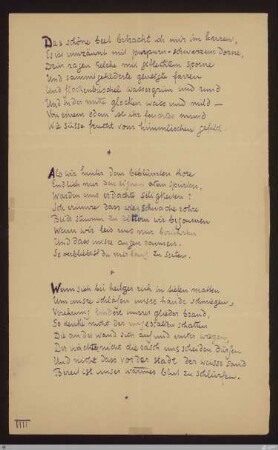 Das schöne beet betracht ich mir im harren,
Es ist umzäunt mit purpurn-schwarzem dorne,
Drin ragen kelche mit geflecktem sporne
Und sammtgefiederte geneigte farren
Und flockenbüschel wassergrün und rund
Und in der mitte glocken weiss und mild —
Von einem odem ist ihr feuchter mund
Wie süsse frucht vom himmlischen gefild.
Als wir hinter dem beblümten tore
Endlich nur das eigne atmen spürten,
Warden uns erdachte seligkeiten?
Ich erinnre dass wie schwache rohre
Beide stumm zu beben wir begannen
Wenn wir leis nur uns berührten
Und dass unsre augen rannen.
So verbliebst du mir lang zu seiten.
Wenn sich bei heiliger ruh in tiefen matten
Um unsre schläfen unsre hände schmiegen,
Verehrung lindert unsrer glieder brand,
So denke nicht der ungestalten schatten
Die an der wand sich auf und unter wiegen,
Der wächter nicht die rasch uns scheiden dürfen
Und nicht dass vor der stadt der weisse sand
Bereit ist unser warmes blut zu schlürfen.